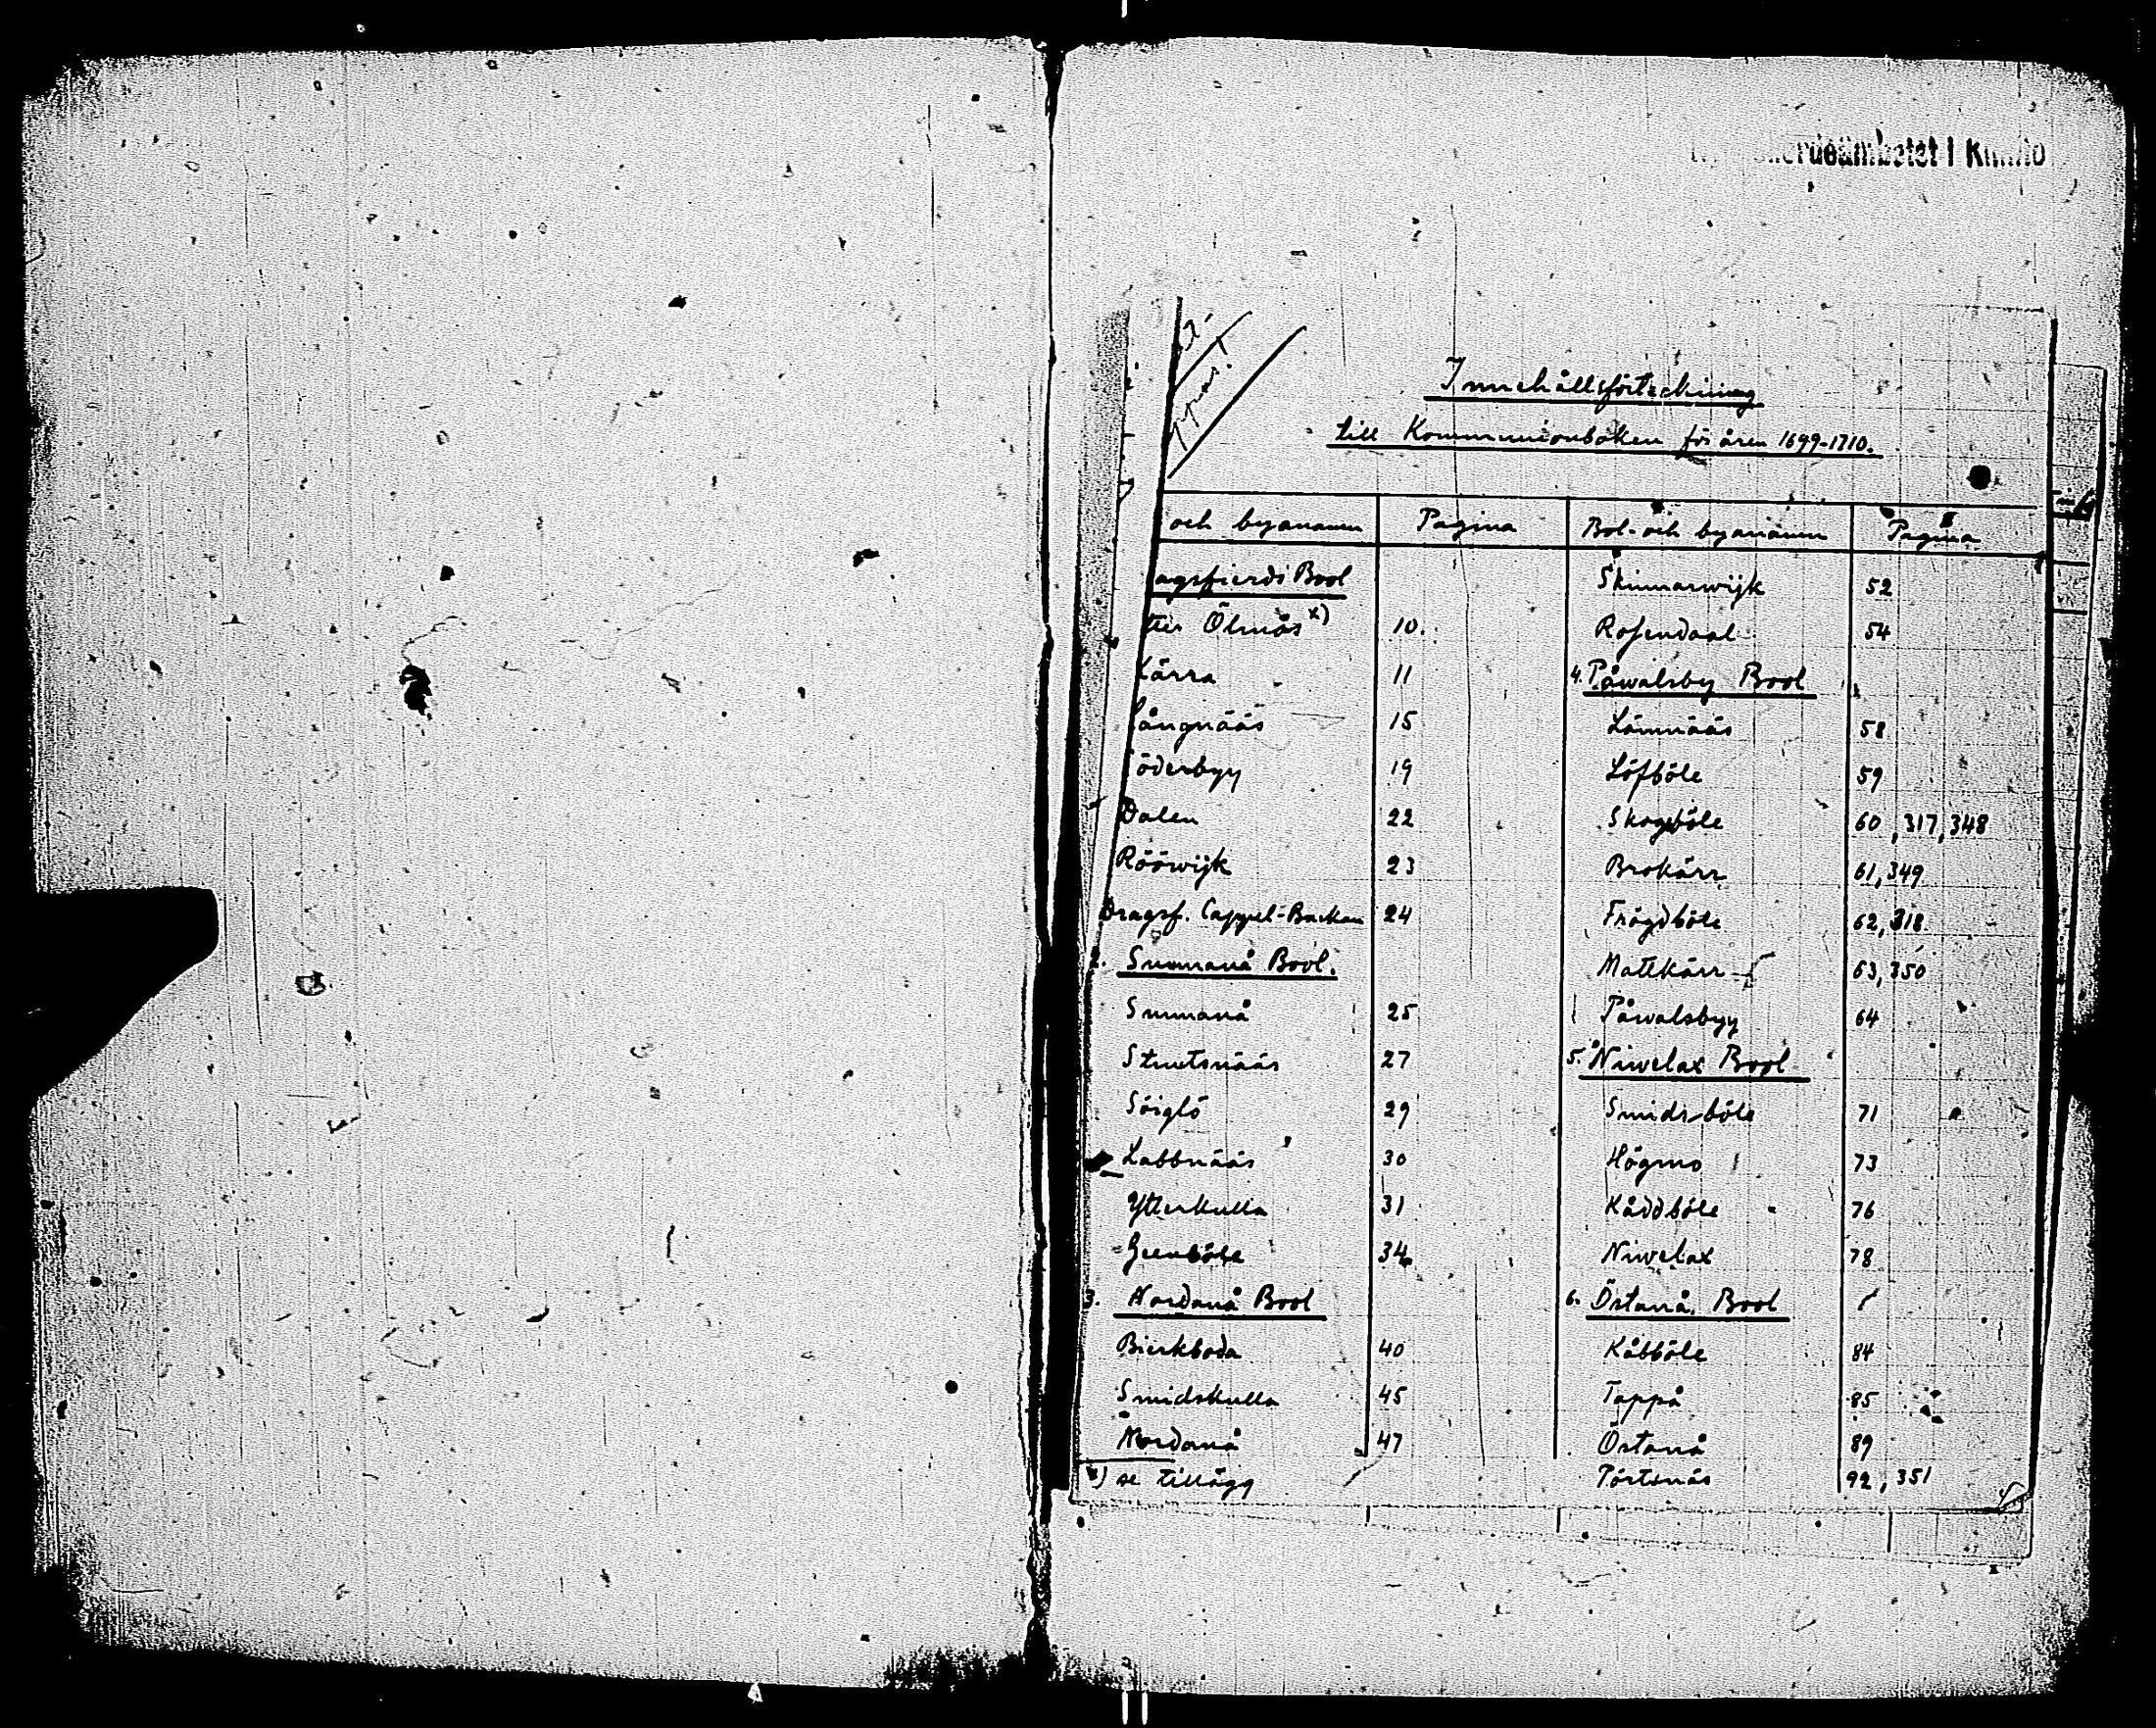 Innehållsförteckning
till Kommunionboken för åren 1699-1710.
och byanamn Pagina
agsfierds Bool
tter Ölmås x) 10.
Kärra 11
Långnääs 15
öderbyy 19
Dalen 22
Rööwijk 23
Dragsf. Cappel-Backan 24
2. Sunnanå Bool.
Sunnanå 25
Stutsnääs 27
Söiglö 29
Labbnääs 30
Ytterkulla 31
Geenböle 34
3. Nordanå Bool
Bierkboda 40
Smidskulla 45
Nordanå 47
x) se tillägg
Bol- och byanamn Pagina
Skinnarwijk 52
Rosendaal 54
4. Påwalsby Bool
Lämnääs 58
Löfböle 59
Skogböle 60, 317, 348
Brokärr 61, 349
Frögdböle 62, 318
Mattkärr 63, 350
Påwalsbyy 64
5. Niwelax Bool
Smidsböle 71
Högmo 73
Kåddböle 76
Niwelax 78
6. Östanå Bool
Kåbböle 84
Tappå 85
Östanå 89
Pörtsnäs 92, 351